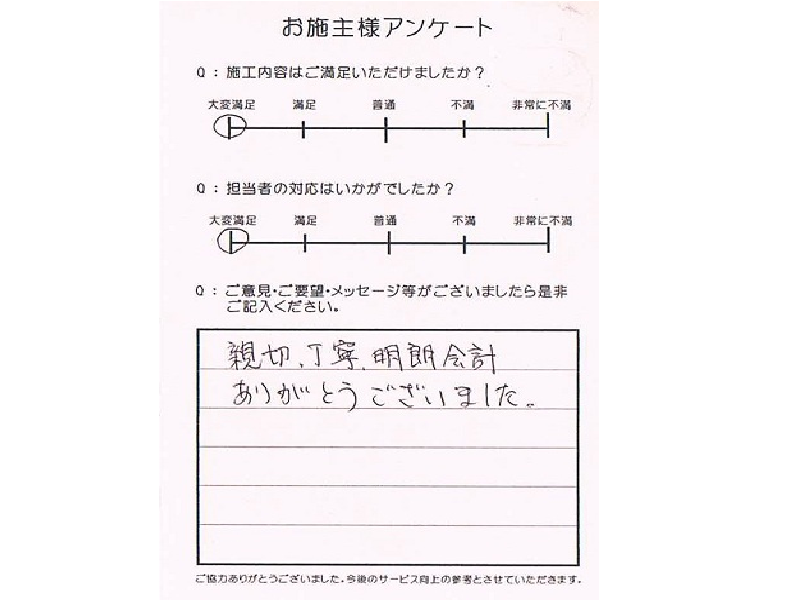 お施主様アンケート
Q：施工内容はご満足いただけましたか？
大変満足 満足 普通 不満 非常に不満
Q：担当者の対応はいかがでしたか？
大変満足 満足 普通 不満 非常に不満
Q：ご意見・ご要望・メッセージ等がございましたら是非
ご記入ください。
親切、丁寧、明朗会計
ありがとうございました。
ご協力ありがとうございました。今後のサービス向上の参考とさせていただきます。